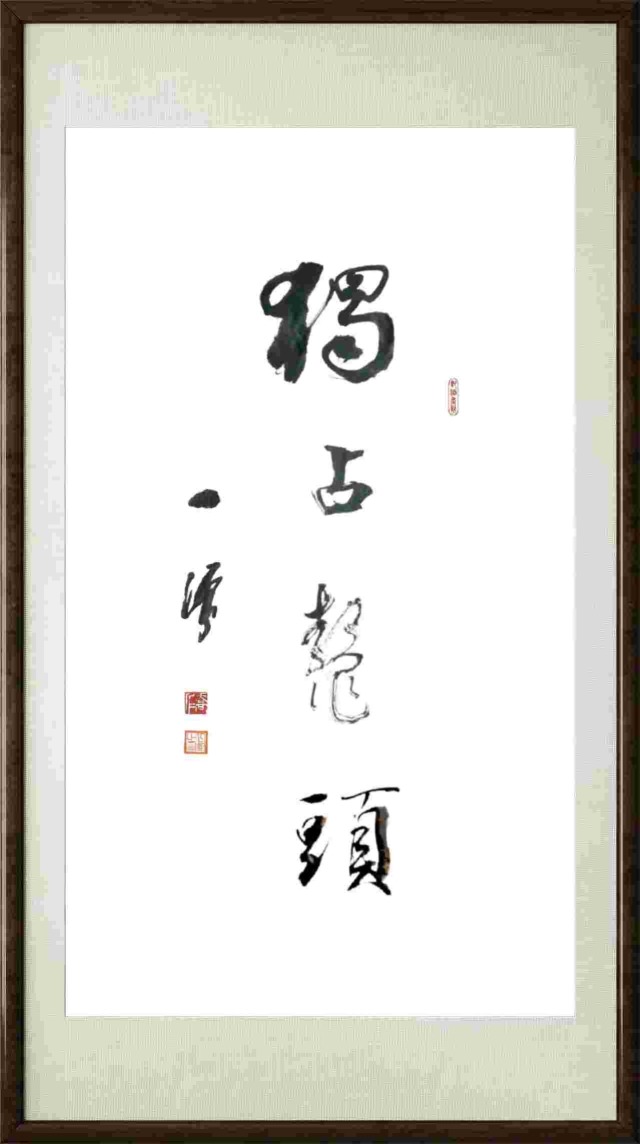 獨占鰲頭
一